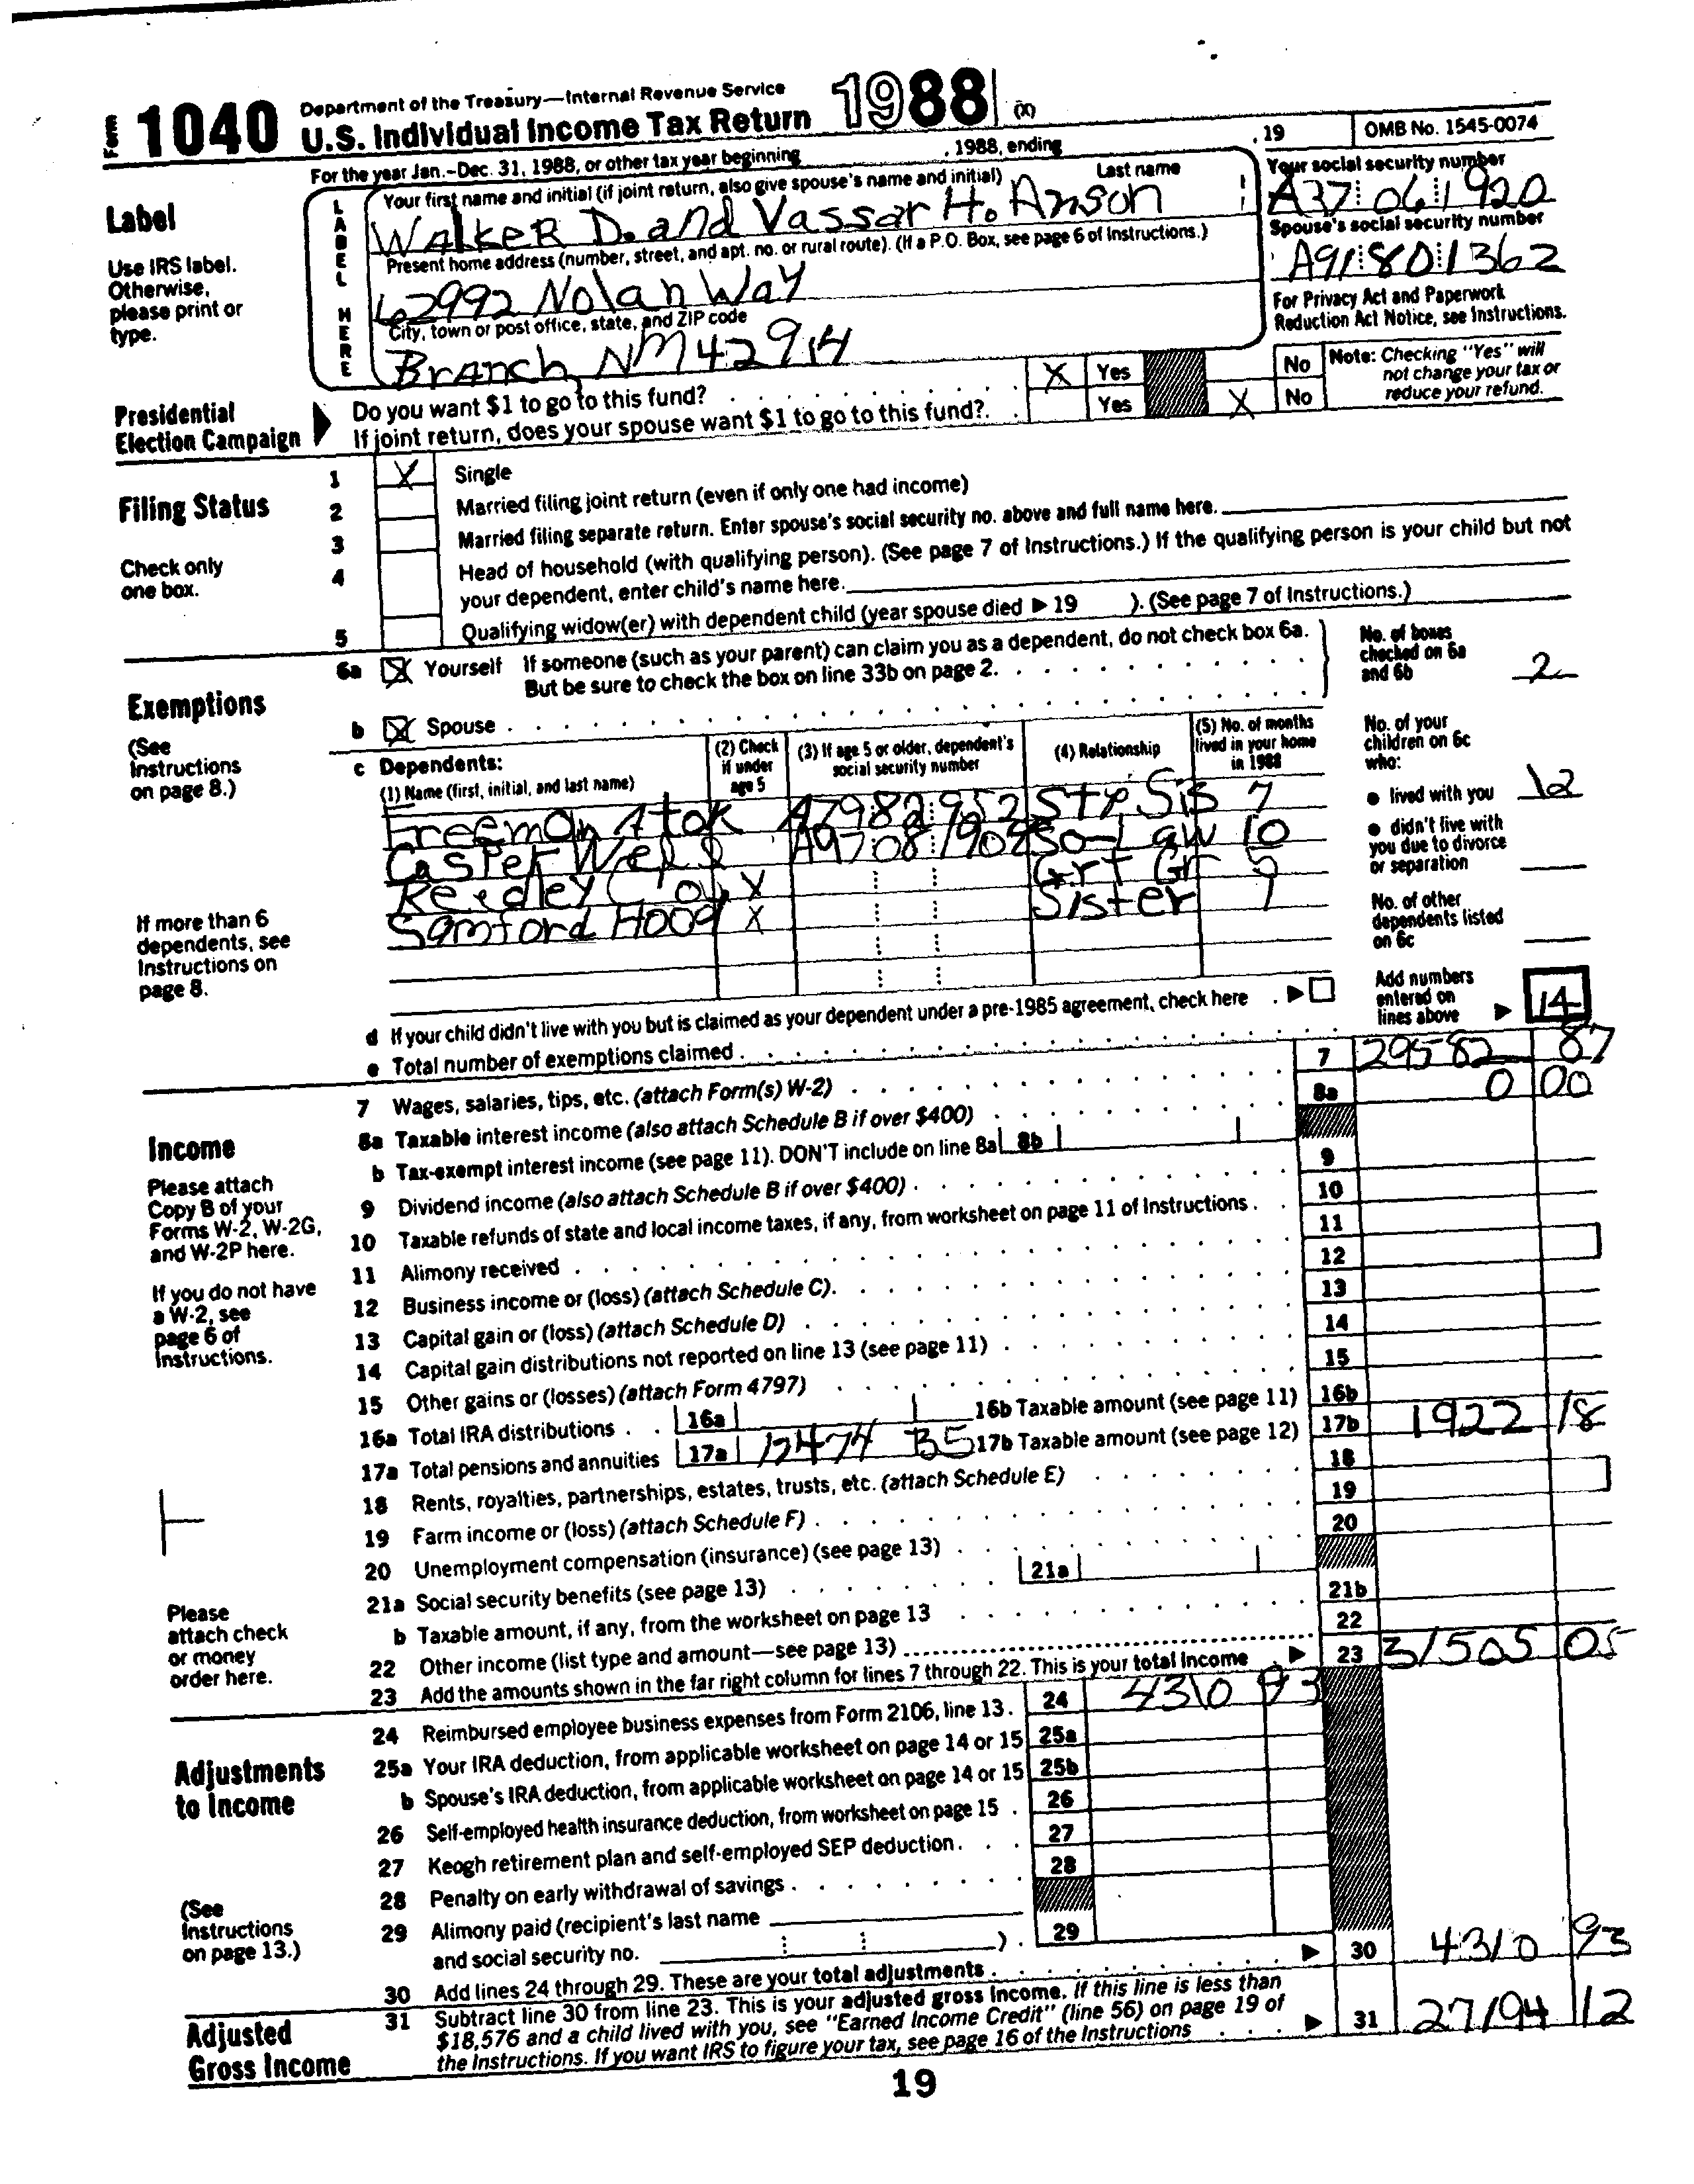 Form 1040 Department of the Treasury—Internal Revenue Service
U.S. Individual Income Tax Return 1988 (X)
For the year Jan.–Dec. 31, 1988, or other tax year beginning , 1988, ending , 19 OMB No. 1545-0074
Label
Use IRS label.
Otherwise,
please print or
type.
LABEL HERE
Your first name and initial (if joint return, also give spouse's name and initial) Last name
Walker D. and Vassar H. Anson
Your social security number
A37 06 1920
Present home address (number, street, and apt. no. or rural route). (If a P.O. Box, see page 6 of Instructions.)
62992 Nolan Way
Spouse's social security number
A91 80 1362
City, town or post office, state, and ZIP code
Branch, NM 42914
For Privacy Act and Paperwork
Reduction Act Notice, see Instructions.
Presidential
Election Campaign
Do you want $1 to go to this fund? X Yes No
If joint return, does your spouse want $1 to go to this fund? Yes X No
Note: Checking "Yes" will
not change your tax or
reduce your refund.
Filing Status
Check only
one box.
1 X Single
2 Married filing joint return (even if only one had income)
3 Married filing separate return. Enter spouse's social security no. above and full name here.
4 Head of household (with qualifying person). (See page 7 of Instructions.) If the qualifying person is your child but not
your dependent, enter child's name here.
5 Qualifying widow(er) with dependent child (year spouse died ▶ 19 ). (See page 7 of Instructions.)
Exemptions
(See
Instructions
on page 8.)
If more than 6
dependents, see
Instructions on
page 8.
6a X Yourself If someone (such as your parent) can claim you as a dependent, do not check box 6a.
But be sure to check the box on line 33b on page 2.
b X Spouse
No. of boxes
checked on 6a
and 6b 2
c Dependents:
(1) Name (first, initial, and last name)
(2) Check
if under
age 5
(3) If age 5 or older, dependent's
social security number
(4) Relationship
(5) No. of months
lived in your home
in 1988
Freeman Atok A79 82 952 StpSis 7
Casper Wel A97 08 1902 So-Law 10
Reedley X Grt Gr 5
Samford Hood X Sister 1
No. of your
children on 6c
who:
● lived with you 12
● didn't live with
you due to divorce
or separation
No. of other
dependents listed
on 6c
Add numbers
entered on
lines above ▶ 14
d If your child didn't live with you but is claimed as your dependent under a pre-1985 agreement, check here ▶
e Total number of exemptions claimed
Income
Please attach
Copy B of your
Forms W-2, W-2G,
and W-2P here.
If you do not have
a W-2, see
page 6 of
Instructions.
Please
attach check
or money
order here.
7 Wages, salaries, tips, etc. (attach Form(s) W-2) 7 29582 87
8a Taxable interest income (also attach Schedule B if over $400) 8a 0 00
b Tax-exempt interest income (see page 11). DON'T include on line 8a 8b
9 Dividend income (also attach Schedule B if over $400) 9
10 Taxable refunds of state and local income taxes, if any, from worksheet on page 11 of Instructions 10
11 Alimony received 11
12 Business income or (loss) (attach Schedule C) 12
13 Capital gain or (loss) (attach Schedule D) 13
14 Capital gain distributions not reported on line 13 (see page 11) 14
15 Other gains or (losses) (attach Form 4797) 15
16a Total IRA distributions 16a 16b Taxable amount (see page 11) 16b
17a Total pensions and annuities 17a 12474 35 17b Taxable amount (see page 12) 17b 1922 18
18 Rents, royalties, partnerships, estates, trusts, etc. (attach Schedule E) 18
19 Farm income or (loss) (attach Schedule F) 19
20 Unemployment compensation (insurance) (see page 13) 20
21a Social security benefits (see page 13) 21a
b Taxable amount, if any, from the worksheet on page 13 21b
22 Other income (list type and amount—see page 13) 22
23 Add the amounts shown in the far right column for lines 7 through 22. This is your total income ▶ 23 31505 05
Adjustments
to Income
(See
Instructions
on page 13.)
24 Reimbursed employee business expenses from Form 2106, line 13 24 4310 93
25a Your IRA deduction, from applicable worksheet on page 14 or 15 25a
b Spouse's IRA deduction, from applicable worksheet on page 14 or 15 25b
26 Self-employed health insurance deduction, from worksheet on page 15 26
27 Keogh retirement plan and self-employed SEP deduction 27
28 Penalty on early withdrawal of savings 28
29 Alimony paid (recipient's last name
and social security no. ) 29
30 Add lines 24 through 29. These are your total adjustments ▶ 30 4310 93
Adjusted
Gross Income
31 Subtract line 30 from line 23. This is your adjusted gross income. If this line is less than
$18,576 and a child lived with you, see "Earned Income Credit" (line 56) on page 19 of
the Instructions. If you want IRS to figure your tax, see page 16 of the Instructions ▶ 31 27194 12
19